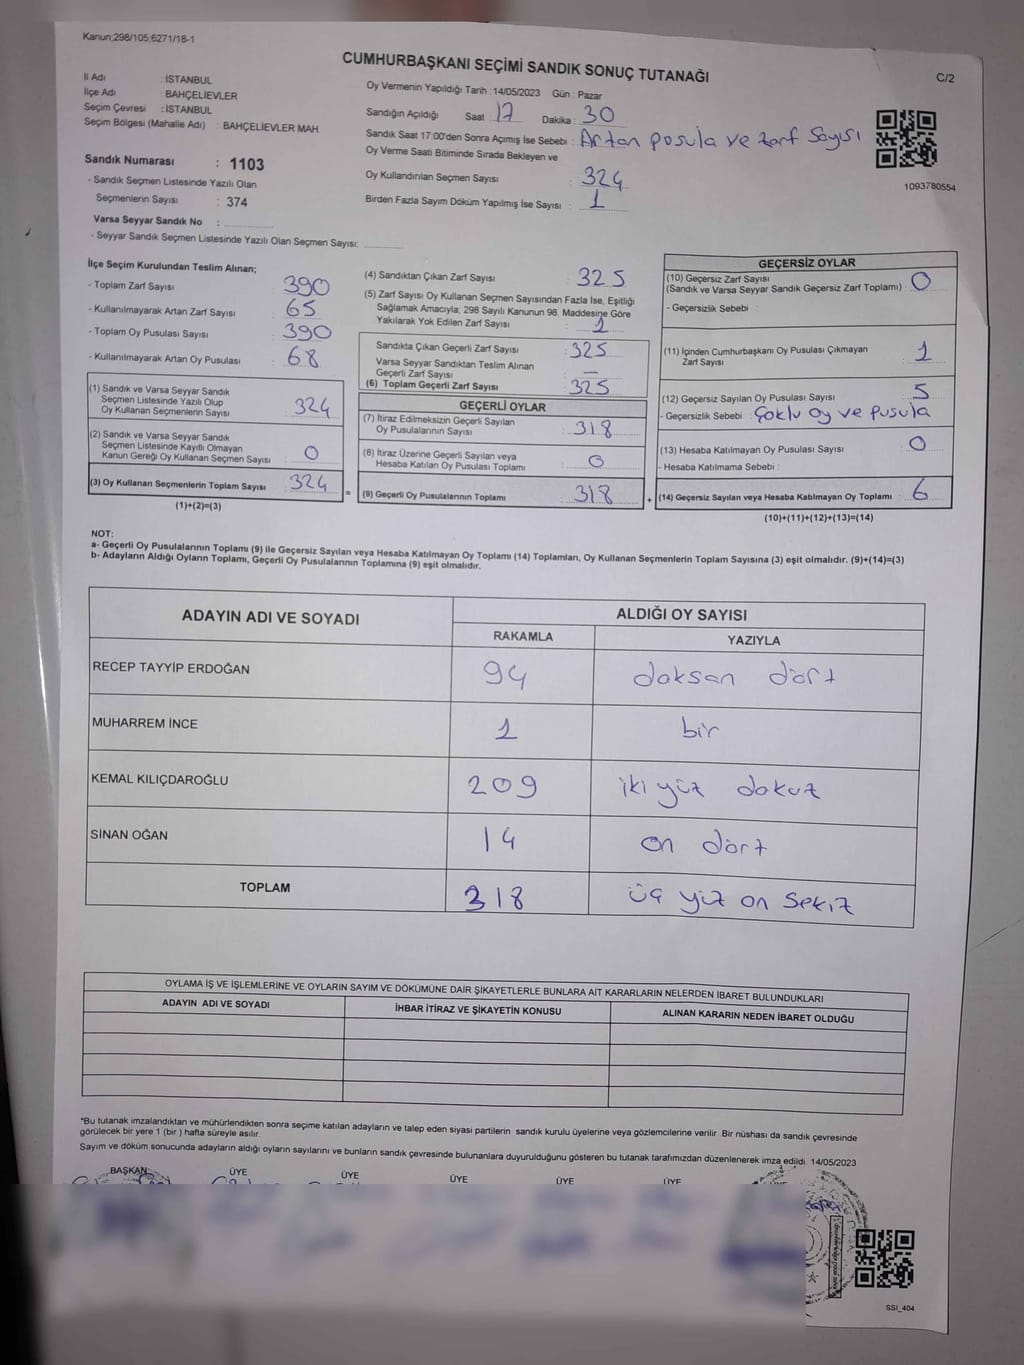 Kanun:298/105;6271/18-1
CUMHURBAŞKANI SEÇİMİ SANDIK SONUÇ TUTANAĞI
C/2
İl Adı : İSTANBUL
İlçe Adı : BAHÇELİEVLER
Seçim Çevresi : İSTANBUL
Seçim Bölgesi (Mahalle Adı) : BAHÇELİEVLER MAH.
Sandık Numarası : 1103
- Sandık Seçmen Listesinde Yazılı Olan
Seçmenlerin Sayısı : 374
Varsa Seyyar Sandık No :
- Seyyar Sandık Seçmen Listesinde Yazılı Olan Seçmen Sayısı:
Oy Vermenin Yapıldığı Tarih : 14/05/2023 Gün : Pazar
Sandığın Açıldığı Saat 17 Dakika : 30
Sandık Saat 17:00'den Sonra Açımış İse Sebebi : Artan posula ve zarf sayısı
Oy Verme Saati Bitiminde Sırada Bekleyen ve
Oy Kullandırılan Seçmen Sayısı : 324
Birden Fazla Sayım Döküm Yapılmış İse Sayısı : 1
1093780554
İlçe Seçim Kurulundan Teslim Alınan;
- Toplam Zarf Sayısı : 390
- Kullanılmayarak Artan Zarf Sayısı : 65
- Toplam Oy Pusulası Sayısı : 390
- Kullanılmayarak Artan Oy Pusulası : 68
(1) Sandık ve Varsa Seyyar Sandık
Seçmen Listesinde Yazılı Olup
Oy Kullanan Seçmenlerin Sayısı : 324
(2) Sandık ve Varsa Seyyar Sandık
Seçmen Listesinde Kayıtlı Olmayan
Kanun Gereği Oy Kullanan Seçmen Sayısı : 0
(3) Oy Kullanan Seçmenlerin Toplam Sayısı : 324
(1)+(2)=(3)
=
(4) Sandıktan Çıkan Zarf Sayısı : 325
(5) Zarf Sayısı Oy Kullanan Seçmen Sayısından Fazla İse, Eşitliği
Sağlamak Amacıyla; 298 Sayılı Kanunun 98. Maddesine Göre
Yakılarak Yok Edilen Zarf Sayısı : 1
Sandıkta Çıkan Geçerli Zarf Sayısı : 325
Varsa Seyyar Sandıktan Teslim Alınan
Geçerli Zarf Sayısı : –
(6) Toplam Geçerli Zarf Sayısı : 325
GEÇERLİ OYLAR
(7) İtiraz Edilmeksizin Geçerli Sayılan
Oy Pusulalarının Sayısı : 318
(8) İtiraz Üzerine Geçerli Sayılan veya
Hesaba Katılan Oy Pusulası Toplamı : 0
(9) Geçerli Oy Pusulalarının Toplamı : 318
+
GEÇERSİZ OYLAR
(10) Geçersiz Zarf Sayısı
(Sandık ve Varsa Seyyar Sandık Geçersiz Zarf Toplamı) : 0
- Geçersizlik Sebebi :
(11) İçinden Cumhurbaşkanı Oy Pusulası Çıkmayan
Zarf Sayısı : 1
(12) Geçersiz Sayılan Oy Pusulası Sayısı : 5
- Geçersizlik Sebebi : Çoklu oy ve pusula
(13) Hesaba Katılmayan Oy Pusulası Sayısı : 0
- Hesaba Katılmama Sebebi :
(14) Geçersiz Sayılan veya Hesaba Katılmayan Oy Toplamı : 6
(10)+(11)+(12)+(13)=(14)
NOT:
a- Geçerli Oy Pusulalarının Toplamı (9) ile Geçersiz Sayılan veya Hesaba Katılmayan Oy Toplamı (14) Toplamları, Oy Kullanan Seçmenlerin Toplam Sayısına (3) eşit olmalıdır. (9)+(14)=(3)
b- Adayların Aldığı Oyların Toplamı, Geçerli Oy Pusulalarının Toplamına (9) eşit olmalıdır.
ADAYIN ADI VE SOYADI
ALDIĞI OY SAYISI
RAKAMLA YAZIYLA
RECEP TAYYİP ERDOĞAN 94 doksan dört
MUHARREM İNCE 1 bir
KEMAL KILIÇDAROĞLU 209 iki yüz dokuz
SİNAN OĞAN 14 on dört
TOPLAM 318 üç yüz on sekiz
OYLAMA İŞ VE İŞLEMLERİNE VE OYLARIN SAYIM VE DÖKÜMÜNE DAİR ŞİKAYETLERLE BUNLARA AİT KARARLARIN NELERDEN İBARET BULUNDUKLARI
ADAYIN ADI VE SOYADI İHBAR İTİRAZ VE ŞİKAYETİN KONUSU ALINAN KARARIN NEDEN İBARET OLDUĞU
*Bu tutanak imzalandıktan ve mühürlendikten sonra seçime katılan adayların ve talep eden siyasi partilerin sandık kurulu üyelerine veya gözlemcilerine verilir .Bir nüshası da sandık çevresinde
görülecek bir yere 1 (bir ) hafta süreyle asılır.
Sayım ve döküm sonucunda adayların aldığı oyların sayılarını ve bunların sandık çevresinde bulunanlara duyurulduğunu gösteren bu tutanak tarafımızdan düzenlenerek imza edildi. 14/05/2023
BAŞKAN ÜYE ÜYE ÜYE ÜYE ÜYE
SSI_404